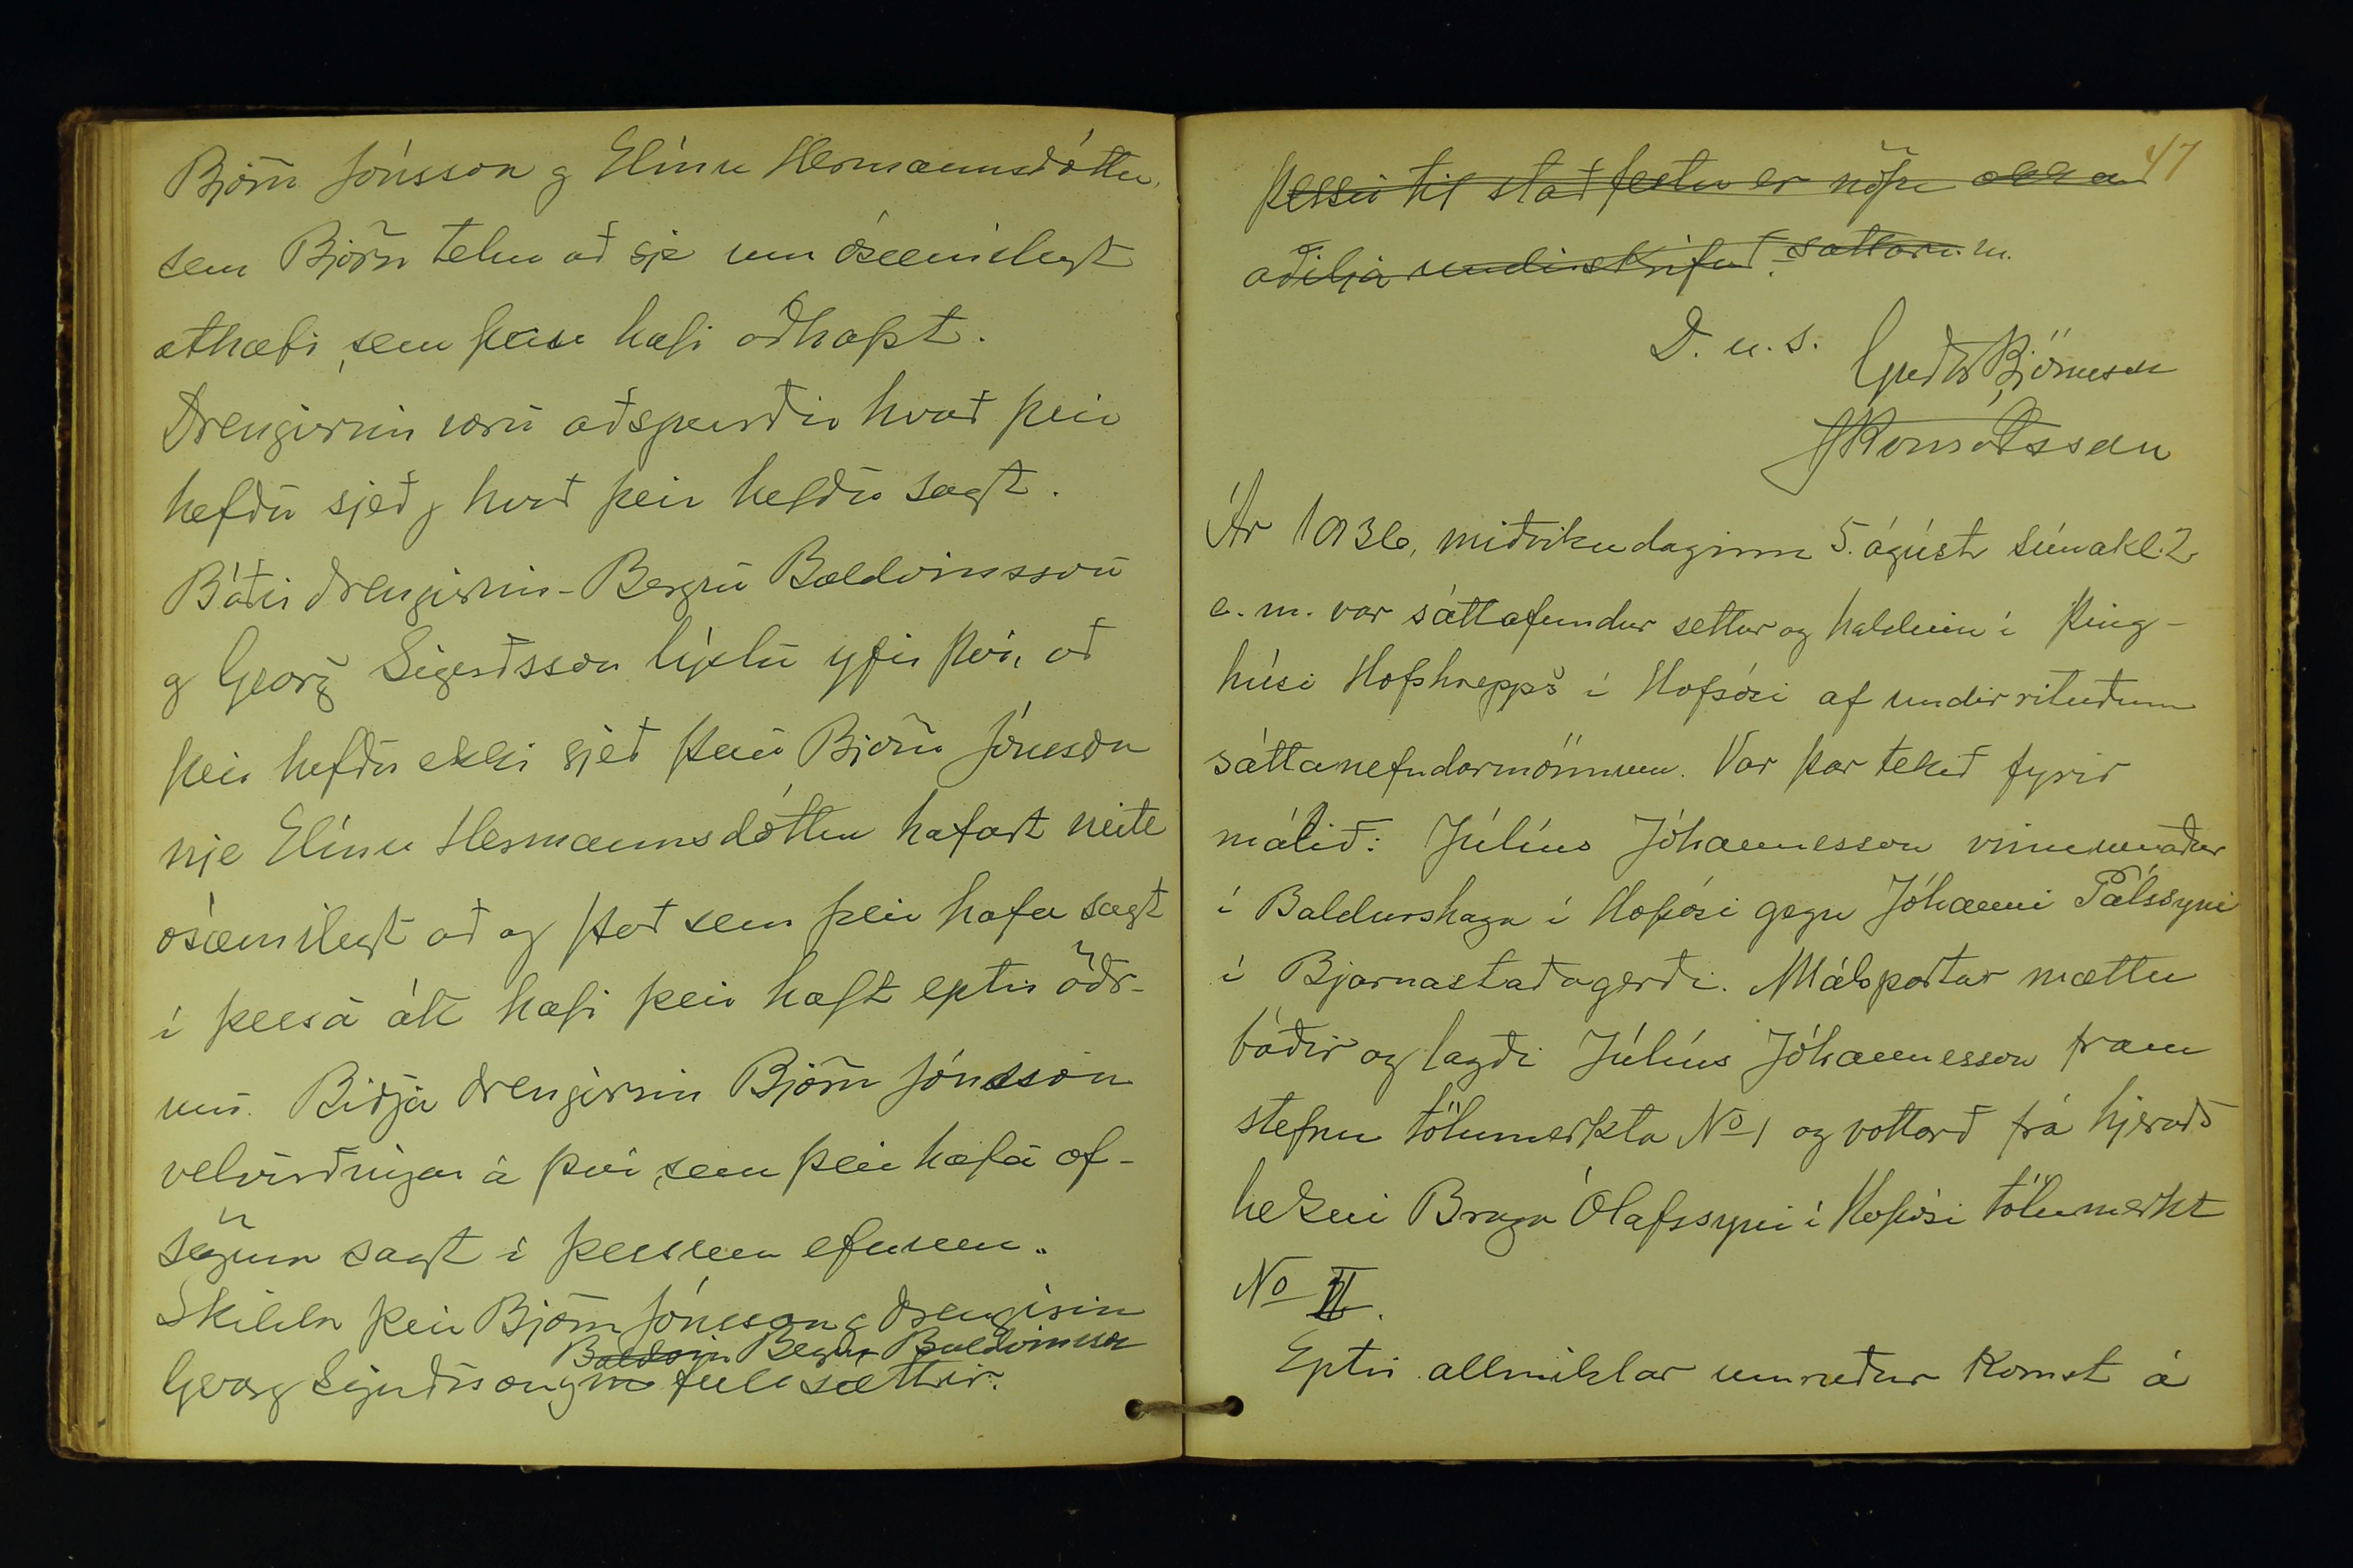 Björn Jónsson og Elínu Hermannsdóttur,
sem Björn telur að sje um ósæmilegt
athæfi, sem þau hafi aðhafst.
Drengirnir voru aðspurðir hvað þeir
hefðu sjeð og hvað þeir hefðu sagt.
Báðir drengirnir - Bergur Baldvinsson
og Georg Sigurðsson lýstu yfir því, að
þeir hefðu ekki sjeð þau Björn Jónsson
nje Elínu Hermannsdóttur hafast neitt
ósæmilegt að og það sem þeir hafa sagt
í þessa átt hafi þeir haft eptir öðr-
um. Biðja drengirnir Björn Jónsson
velvirðingar á því, sem þeir hafa of-
sögum sagt í þessum efnum.
Skilda þeir Björn Jónsson og drengirnir
Baldvin Bergur Baldvinsson
Georg Sigurðsson og full sáttir.
47
Þessu til staðfestu er nöfn okkar
aðilja undirskrifuð. sáttam.
D. u. s.
Guðm Björnsson
JKonráðsson
Ár 1936, miðvikudaginn 5. ágúst kl. 2
e. m. var sáttafundur settur og haldinn í þing-
húsi Hofshrepps í Hofsósi af undirrituðum
sáttanefndarmönnum. Var þar tekið fyrir
málið: Júlíus Jóhannesson vinnumaður
í Baldurshaga í Hofsósi gegn Jóhanni Pálssyni
í Bjarnastaðagerði. Málspartar mættu
báðir og lagði Júlíus Jóhannesson fram
stefnu tölumerkta No 1 og vottorð frá hjeraðs
lækni Braga Ólafssyni í Hofsósi tölumerkt
No II.
Eptir allmiklar umræður komst á